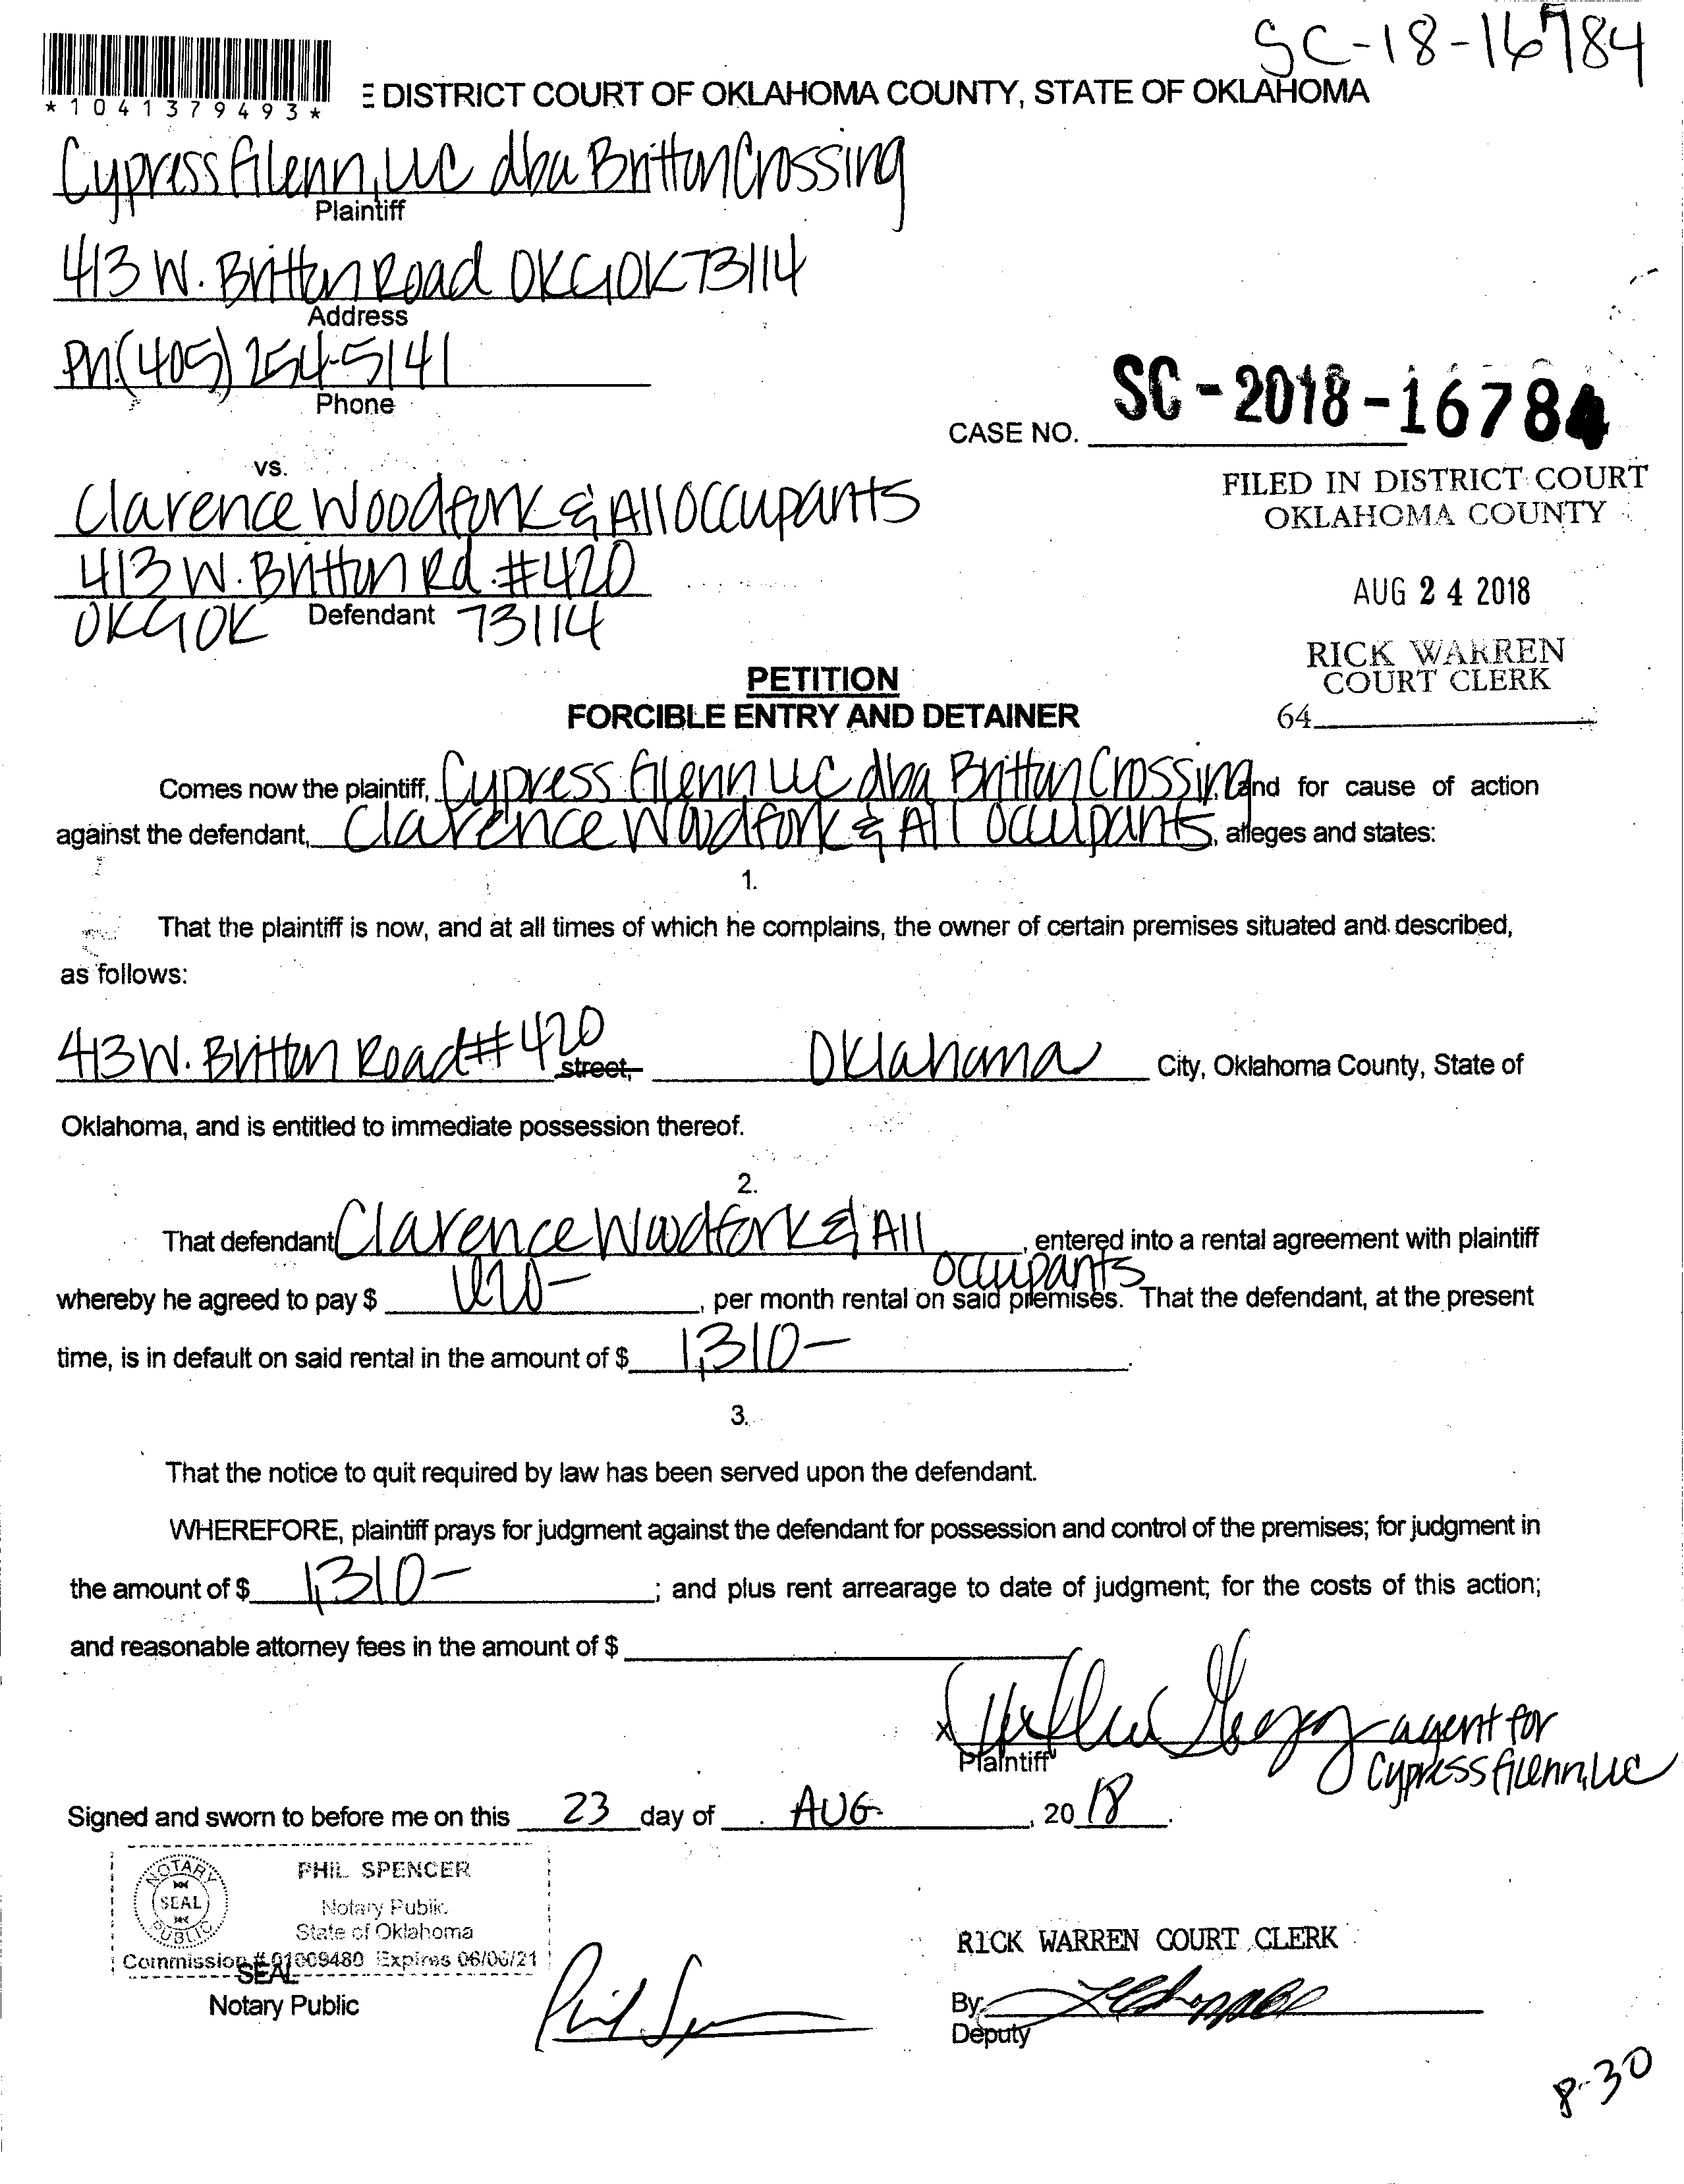 SC-18-16784
*1041379493*
E DISTRICT COURT OF OKLAHOMA COUNTY, STATE OF OKLAHOMA
Cypress Glenn, LLC dba Britton Crossing
Plaintiff
413 W. Britton Road OKC, OK 73114
Address
Ph. (405) 254-5141
Phone
CASE NO. SC-2018-16784
vs.
FILED IN DISTRICT COURT
OKLAHOMA COUNTY
Clarence Woodfork & All Occupants
413 W. Britton Rd. #420
AUG 24 2018
OKC, OK Defendant 73114
RICK WARREN
COURT CLERK
64
PETITION
FORCIBLE ENTRY AND DETAINER
Comes now the plaintiff, Cypress Glenn LLC dba Britton Crossing, and for cause of action
against the defendant, Clarence Woodfork & All Occupants, alleges and states:
1.
That the plaintiff is now, and at all times of which he complains, the owner of certain premises situated and described,
as follows:
413 W. Britton Road #420 street, Oklahoma City, Oklahoma County, State of
Oklahoma, and is entitled to immediate possession thereof.
2.
That defendant Clarence Woodfork & All Occupants, entered into a rental agreement with plaintiff
whereby he agreed to pay $, per month rental on said premises. That the defendant, at the present
time, is in default on said rental in the amount of $ 1,310-.
3.
That the notice to quit required by law has been served upon the defendant.
WHEREFORE, plaintiff prays for judgment against the defendant for possession and control of the premises; for judgment in
the amount of $ 1,310-; and plus rent arrearage to date of judgment; for the costs of this action;
and reasonable attorney fees in the amount of $
x agent for
Plaintiff Cypress Glenn, LLC
Signed and sworn to before me on this 23 day of AUG, 20 18.
NOTARY PUBLIC SEAL
PHIL SPENCER
Notary Public
State of Oklahoma
Commission # 01009480 Expires 06/06/21
SEAL
Notary Public
RICK WARREN COURT CLERK
By:
Deputy
8-30